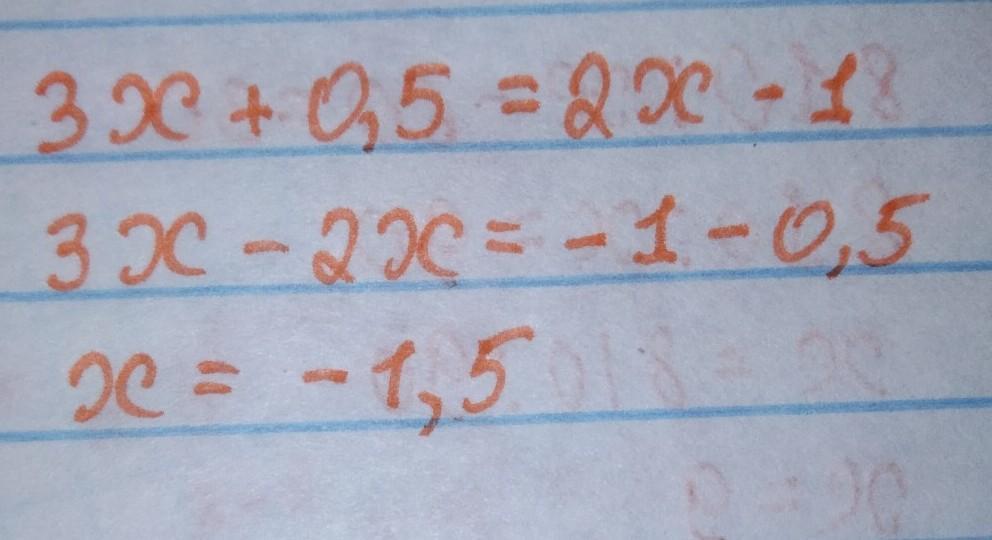 3x + 0,5 = 2x - 1
3x - 2x = -1 - 0,5
x = -1,5